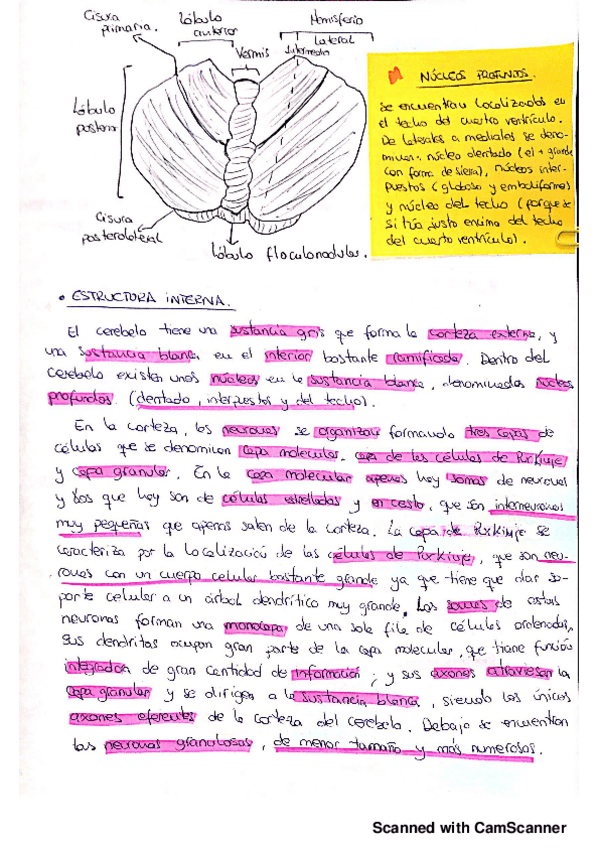 Cisura
primaria.
Lóbulo
anterior
Hemisferio
Lateral
Intermedio
Vermis
Lóbulo
posterior
Cisura
posterolateral
Lóbulo floculonodular.
NÚCLEOS PROFUNDOS.
Se encuentran localizados en
el techo del cuarto ventrículo.
De laterales a mediales se deno-
minan: núcleo dentado (el + grande
con forma de sierra), núcleos inter-
puestos (globoso y emboliforme)
y núcleo del techo (porque se
sitúa justo encima del techo
del cuarto ventrículo).
• ESTRUCTURA INTERNA.
El cerebelo tiene una sustancia gris que forma la corteza externa, y
una sustancia blanca en el interior bastante ramificada. Dentro del
cerebelo existen unos núcleos en la sustancia blanca, denominados núcleos
profundos (dentado, interpuestos y del techo).
En la corteza, las neuronas se organizan formando tres capas de
células que se denominan capa molecular, capa de las células de Purkinje
y capa granular. En la capa molecular apenas hay somas de neuronas
y los que hay son de células estrelladas y en cesto, que son interneuronas
muy pequeñas que apenas salen de la corteza. La capa de Purkinje se
caracteriza por la localización de las células de Purkinje, que son neu-
ronas con un cuerpo celular bastante grande ya que tiene que dar so-
porte celular a un árbol dendrítico muy grande. Los somas de estas
neuronas forman una monocapa de una sola fila de células ordenadas,
sus dendritas ocupan gran parte de la capa molecular, que tiene función
integradora de gran cantidad de información, y sus axones atraviesan la
capa granular y se dirigen a la sustancia blanca, siendo los únicos
axones eferentes de la corteza del cerebelo. Debajo se encuentran
las neuronas granulosas, de menor tamaño y más numerosas.
Scanned with CamScanner